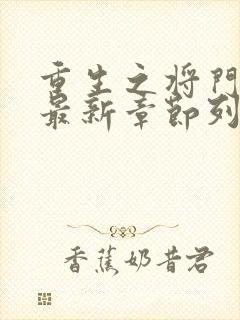 重生之将门
最新章节列
香蕉奶昔君